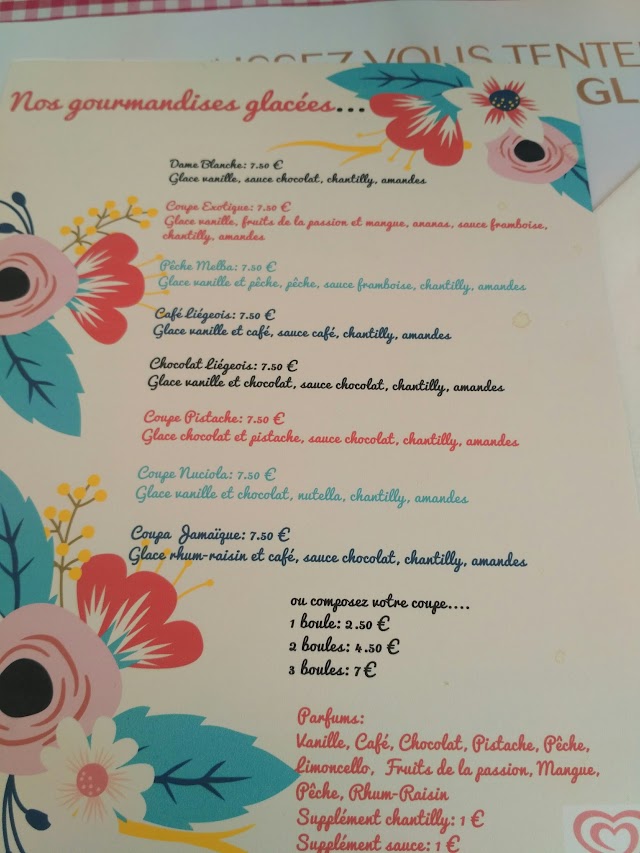 VOUS TENTE
GL
Nos gourmandises glacées...
Dame Blanche: 7.50 €
Glace vanille, sauce chocolat, chantilly, amandes
Coupe Exotique: 7.50 €
Glace vanille, fruits de la passion et mangue, ananas, sauce framboise,
chantilly, amandes
Pêche Melba: 7.50 €
Glace vanille et pêche, pêche, sauce framboise, chantilly, amandes
Café Liégeois: 7.50 €
Glace vanille et café, sauce café, chantilly, amandes
Chocolat Liégeois: 7.50 €
Glace vanille et chocolat, sauce chocolat, chantilly, amandes
Coupe Pistache: 7.50 €
Glace chocolat et pistache, sauce chocolat, chantilly, amandes
Coupe Nuciola: 7.50 €
Glace vanille et chocolat, nutella, chantilly, amandes
Coupa Jamaïque: 7.50 €
Glace rhum-raisin et café, sauce chocolat, chantilly, amandes
ou composez votre coupe....
1 boule: 2.50 €
2 boules: 4.50 €
3 boules: 7 €
Parfums:
Vanille, Café, Chocolat, Pistache, Pêche,
Limoncello, Fruits de la passion, Mangue,
Pêche, Rhum-Raisin
Supplément chantilly: 1 €
Supplément sauce: 1 €